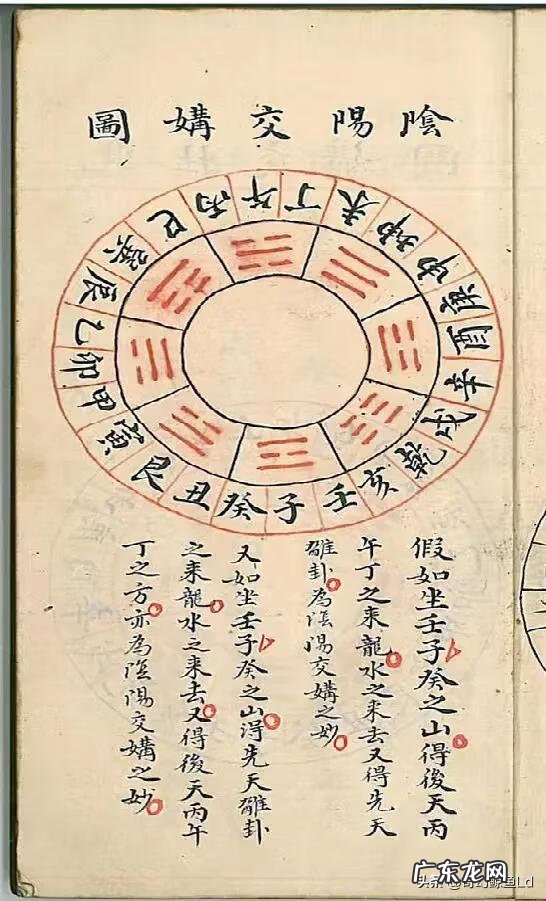 陰陽交媾圖
子
癸
丑
艮
寅
甲
卯
乙
辰
巽
巳
丙
午
丁
未
坤
申
庚
酉
辛
戌
乾
亥
壬
假如坐壬子癸之山得後天丙
午丁之来龍水之来去又得先天
離卦為陰陽交媾之妙
又如坐壬子癸之山淂先天離卦
之来龍水之来去又得後天丙午
丁之方亦為陰陽交媾之妙
广东龙网